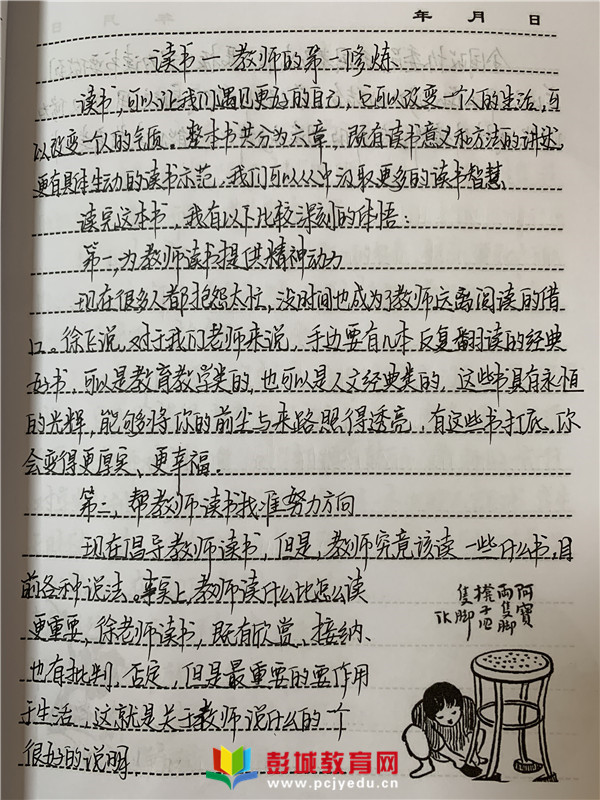 年 月 日
读书一教师的第一修炼
读书,可以让我们遇见更好的自己,它可以改变一个人的生活,可
以改变一个人的气质。整本书共分为六章,既有读书意义和方法的讲述,
更有具体生动的读书示范,我们可以从中汲取更多的读书智慧
读完这本书,我有以下比较深刻的体悟:
第一,为教师读书提供精神动力
现在很多人都抱怨太忙,没时间也成为了教师远离阅读的借
口。徐飞说,对于我们老师来说,手边要有几本反复翻读的经典
好书,可以是教育教学类的,也可以是人文经典类的,这些书具有永恒
的光辉,能够将你的前尘与来路照得透亮,有这些书打底,你
会变得更厚实、更幸福。
第二,帮教师读书找准努力方向
现在倡导教师读书,但是,教师究竟该读一些什么书,目
前各种说法。事实上,教师读什么比怎么读
更重要,徐老师读书,既有欣赏、接纳、
也有批判、否定,但是最重要的要作用
于生活,这就是关于教师说什么的一个
很好的说明。
阿寶
兩隻腳
櫈子四
隻腳
TK
彭城教育网
www.pcjyedu.cn